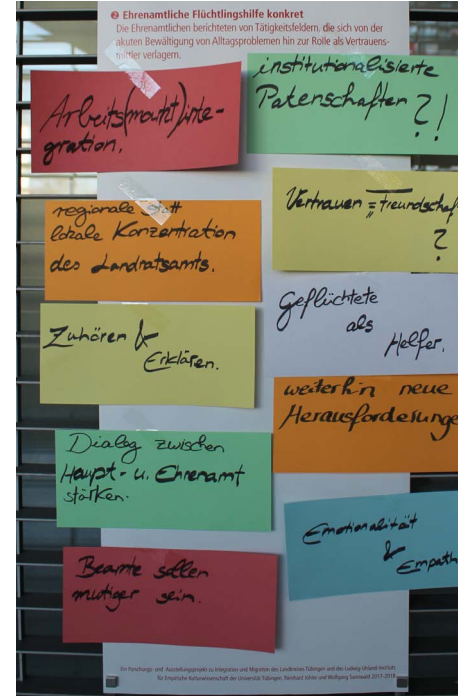 ❷ Ehrenamtliche Flüchtlingshilfe konkret
Die Ehrenamtlichen berichteten von Tätigkeitsfeldern, die sich von der
akuten Bewältigung von Alltagsproblemen hin zur Rolle als Vertrauens-
mittler verlagern.
Arbeits(markt)inte-
gration.
institutionalisierte
Patenschaften ?!
regionale statt
lokale Konzentration
des Landratsamts.
Vertrauen = "Freundschaf
?
Zuhören &
Erklären.
Geflüchtete
als
Helfer.
weiterhin neue
Herausforderunge
Dialog zwischen
Haupt- u. Ehrenamt
stärken.
Emotionalität
&
Empath
Beamte sollen
mutiger sein.
Ein Forschungs- und Ausstellungsprojekt zu Integration und Migration des Landkreises Tübingen und des Ludwig-Uhland-Instituts
für Empirische Kulturwissenschaft der Universität Tübingen, Reinhard Johler und Wolfgang Sannwald 2017-2018